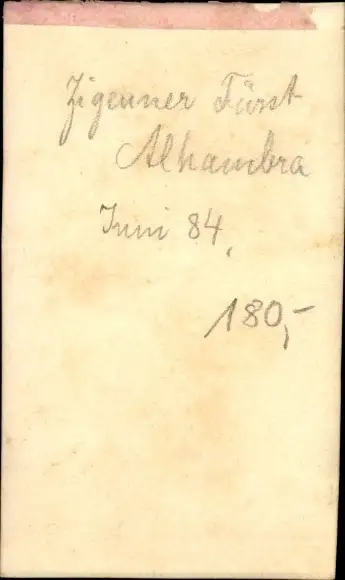 Zigeuner Fürst
Alhambra
Juni 84,
180,-